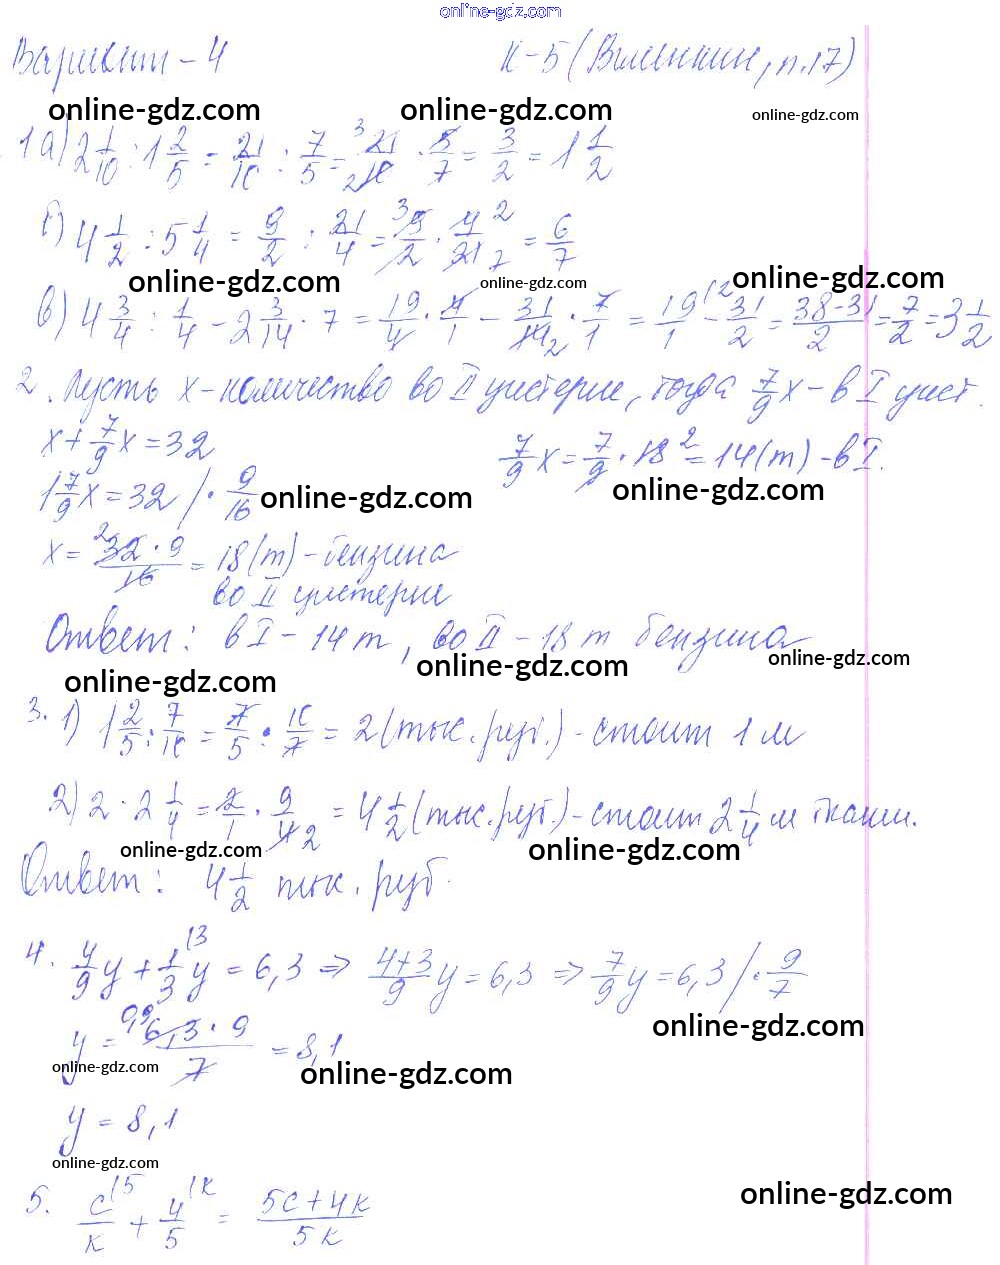 online-gdz.com
Вариант - 4 К-5 (Виленкин, п.17)
online-gdz.com online-gdz.com online-gdz.com
1 а) 2 1/10 : 1 2/5 = 21/10 : 7/5 = 21/10 · 5/7 = 3/2 = 1 1/2
б) 4 1/2 : 5 1/4 = 9/2 : 21/4 = 9/2 · 4/21 = 6/7
online-gdz.com online-gdz.com online-gdz.com
в) 4 3/4 : 1/4 - 2 3/14 · 7 = 19/4 · 4/1 - 31/14 · 7/1 = 19/1 - 31/2 = (38-31)/2 = 7/2 = 3 1/2
2. Пусть x - количество во II цистерне, тогда 7/9 x - в I цист.
x + 7/9 x = 32 7/9 x = 7/9 · 18 = 14 (т) - в I.
1 7/9 x = 32 / · 9/16
online-gdz.com online-gdz.com
x = (32 · 9)/16 = 18 (т) - бензина
во II цистерне
Ответ: в I - 14 т, во II - 18 т бензина
online-gdz.com online-gdz.com online-gdz.com
3. 1) 1 2/5 : 7/10 = 7/5 · 10/7 = 2 (тыс. руб.) - стоит 1 м
2) 2 · 2 1/4 = 2/1 · 9/4 = 4 1/2 (тыс. руб.) - стоит 2 1/4 м ткани.
online-gdz.com online-gdz.com
Ответ: 4 1/2 тыс. руб.
4. 4/9 y + 1/3 y = 6,3 ⇒ (4+3)/9 y = 6,3 ⇒ 7/9 y = 6,3 / · 9/7
online-gdz.com
y = (6,3 · 9)/7 = 8,1
online-gdz.com online-gdz.com
y = 8,1
online-gdz.com
online-gdz.com
5. c/k + 4/5 = (5c + 4k)/5k